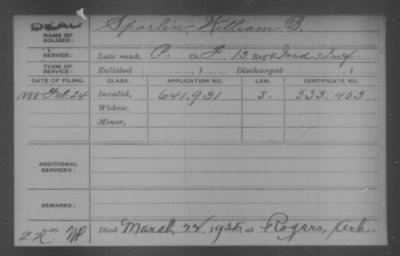 DEAD
NAME OF SOLDIER: Sparlin, William B.
SERVICE: Late rank, P. Co. F, 13 Reg't Ind. Inf.
TERM OF SERVICE: Enlisted , 1 Discharged , 1
DATE OF FILING. CLASS. APPLICATION NO. LAW. CERTIFICATE NO.
1888 Feb. 24 Invalid, 641,931 J. 533,453
Widow,
Minor,
ADDITIONAL SERVICES:
REMARKS:
Died March 22, at Rogers, Ark.